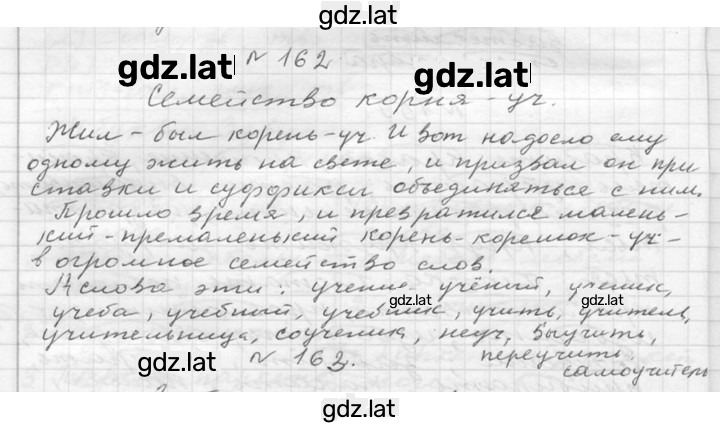 gdz.lat
gdz.lat № 162. gdz.lat
Семейство корня -уч.
Жил-был корень-уч. И вот надоело ему
одному жить на свете, и призвал он при
ставки и суффиксы объединяться с ним.
Прошло время, и превратился малень-
кий-премаленький корень-корешок-уч-
в огромное семейство слов.
А слова эти: учение, учёный, ученик,
gdz.lat gdz.lat
учеба, учебный, учебник, учить, учитель,
учительница, соученик, неуч, выучить,
gdz.lat № 162. переучить,
самоучитель
gdz.lat